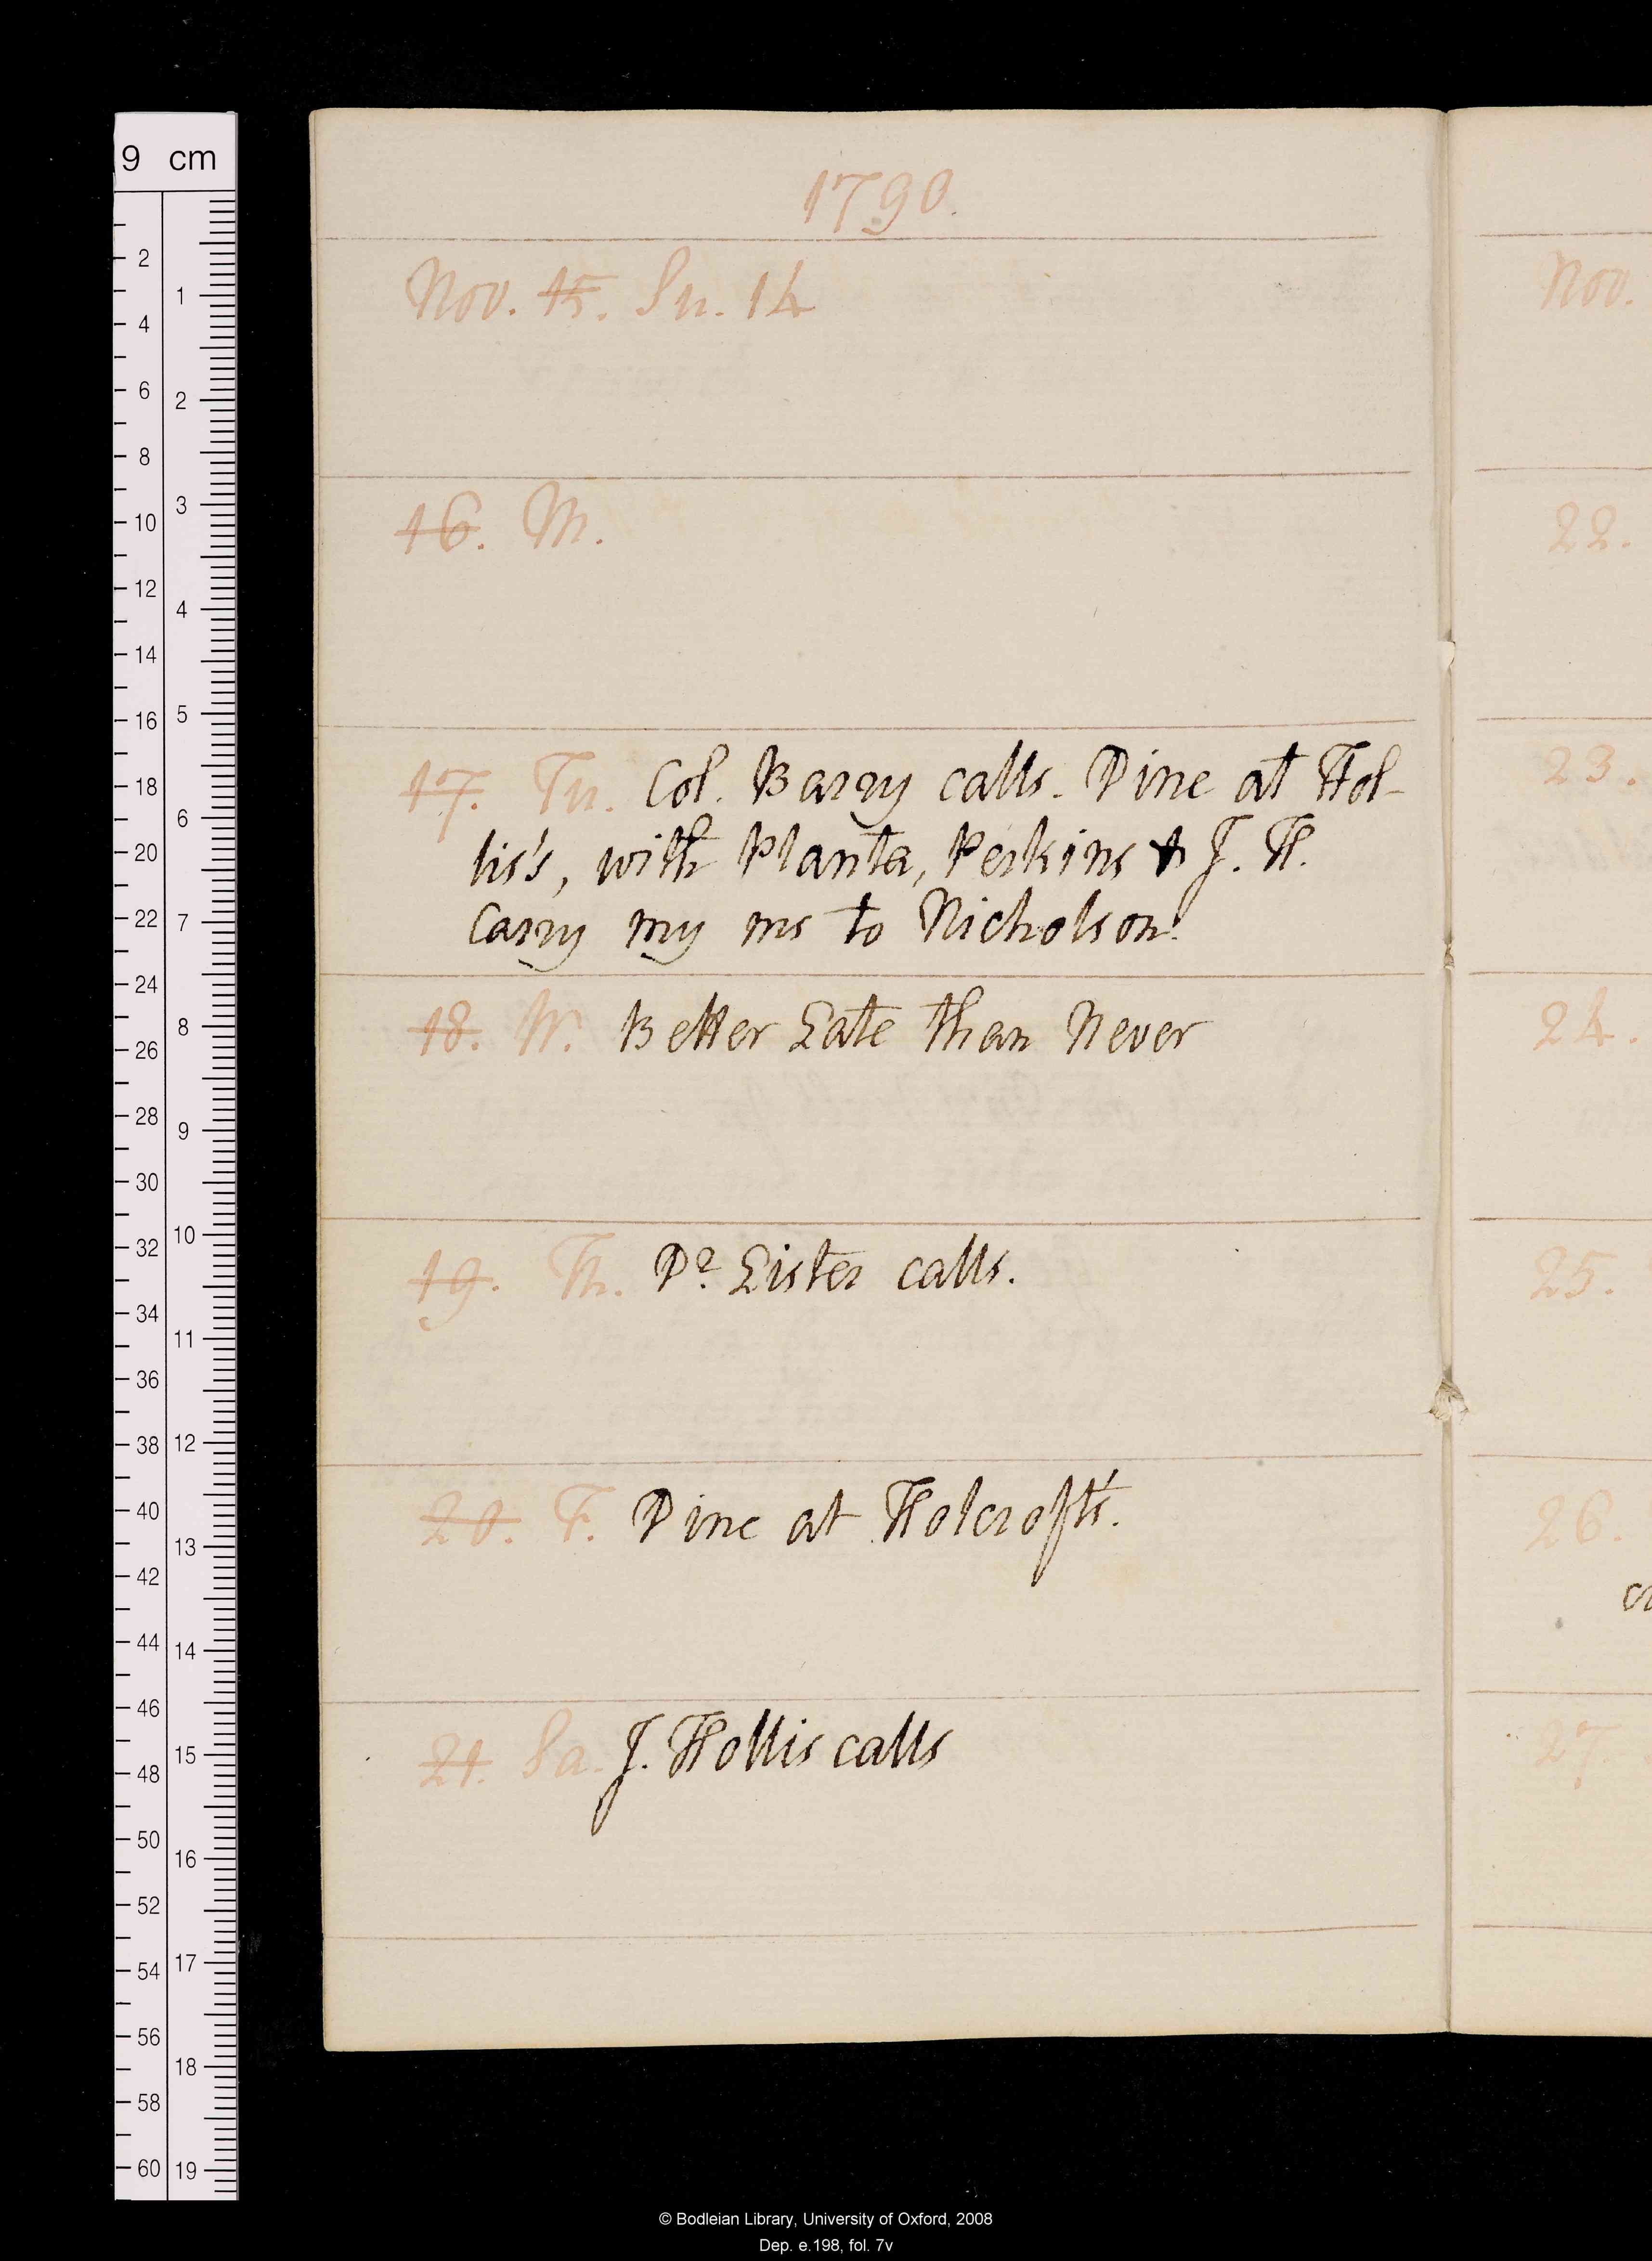 1790.
Nov. 15. Su. 14
16. M.
17. Tu. Col. Barry calls. Dine at Hol-
lis's, with Planta, Perkins & J. H.
Carry my ms to Nicholson.
18. W. Better Late than Never
19. Th. Dr. Lister calls.
20. F. Dine at Holcroft's.
21. Sa. J. Hollis calls
Nov.
22.
23.
24.
25.
26.
27
9 cm
2
4
6
8
10
12
14
16
18
20
22
24
26
28
30
32
34
36
38
40
42
44
46
48
50
52
54
56
58
60
1
2
3
4
5
6
7
8
9
10
11
12
13
14
15
16
17
18
19
© Bodleian Library, University of Oxford, 2008
Dep. e.198, fol. 7v